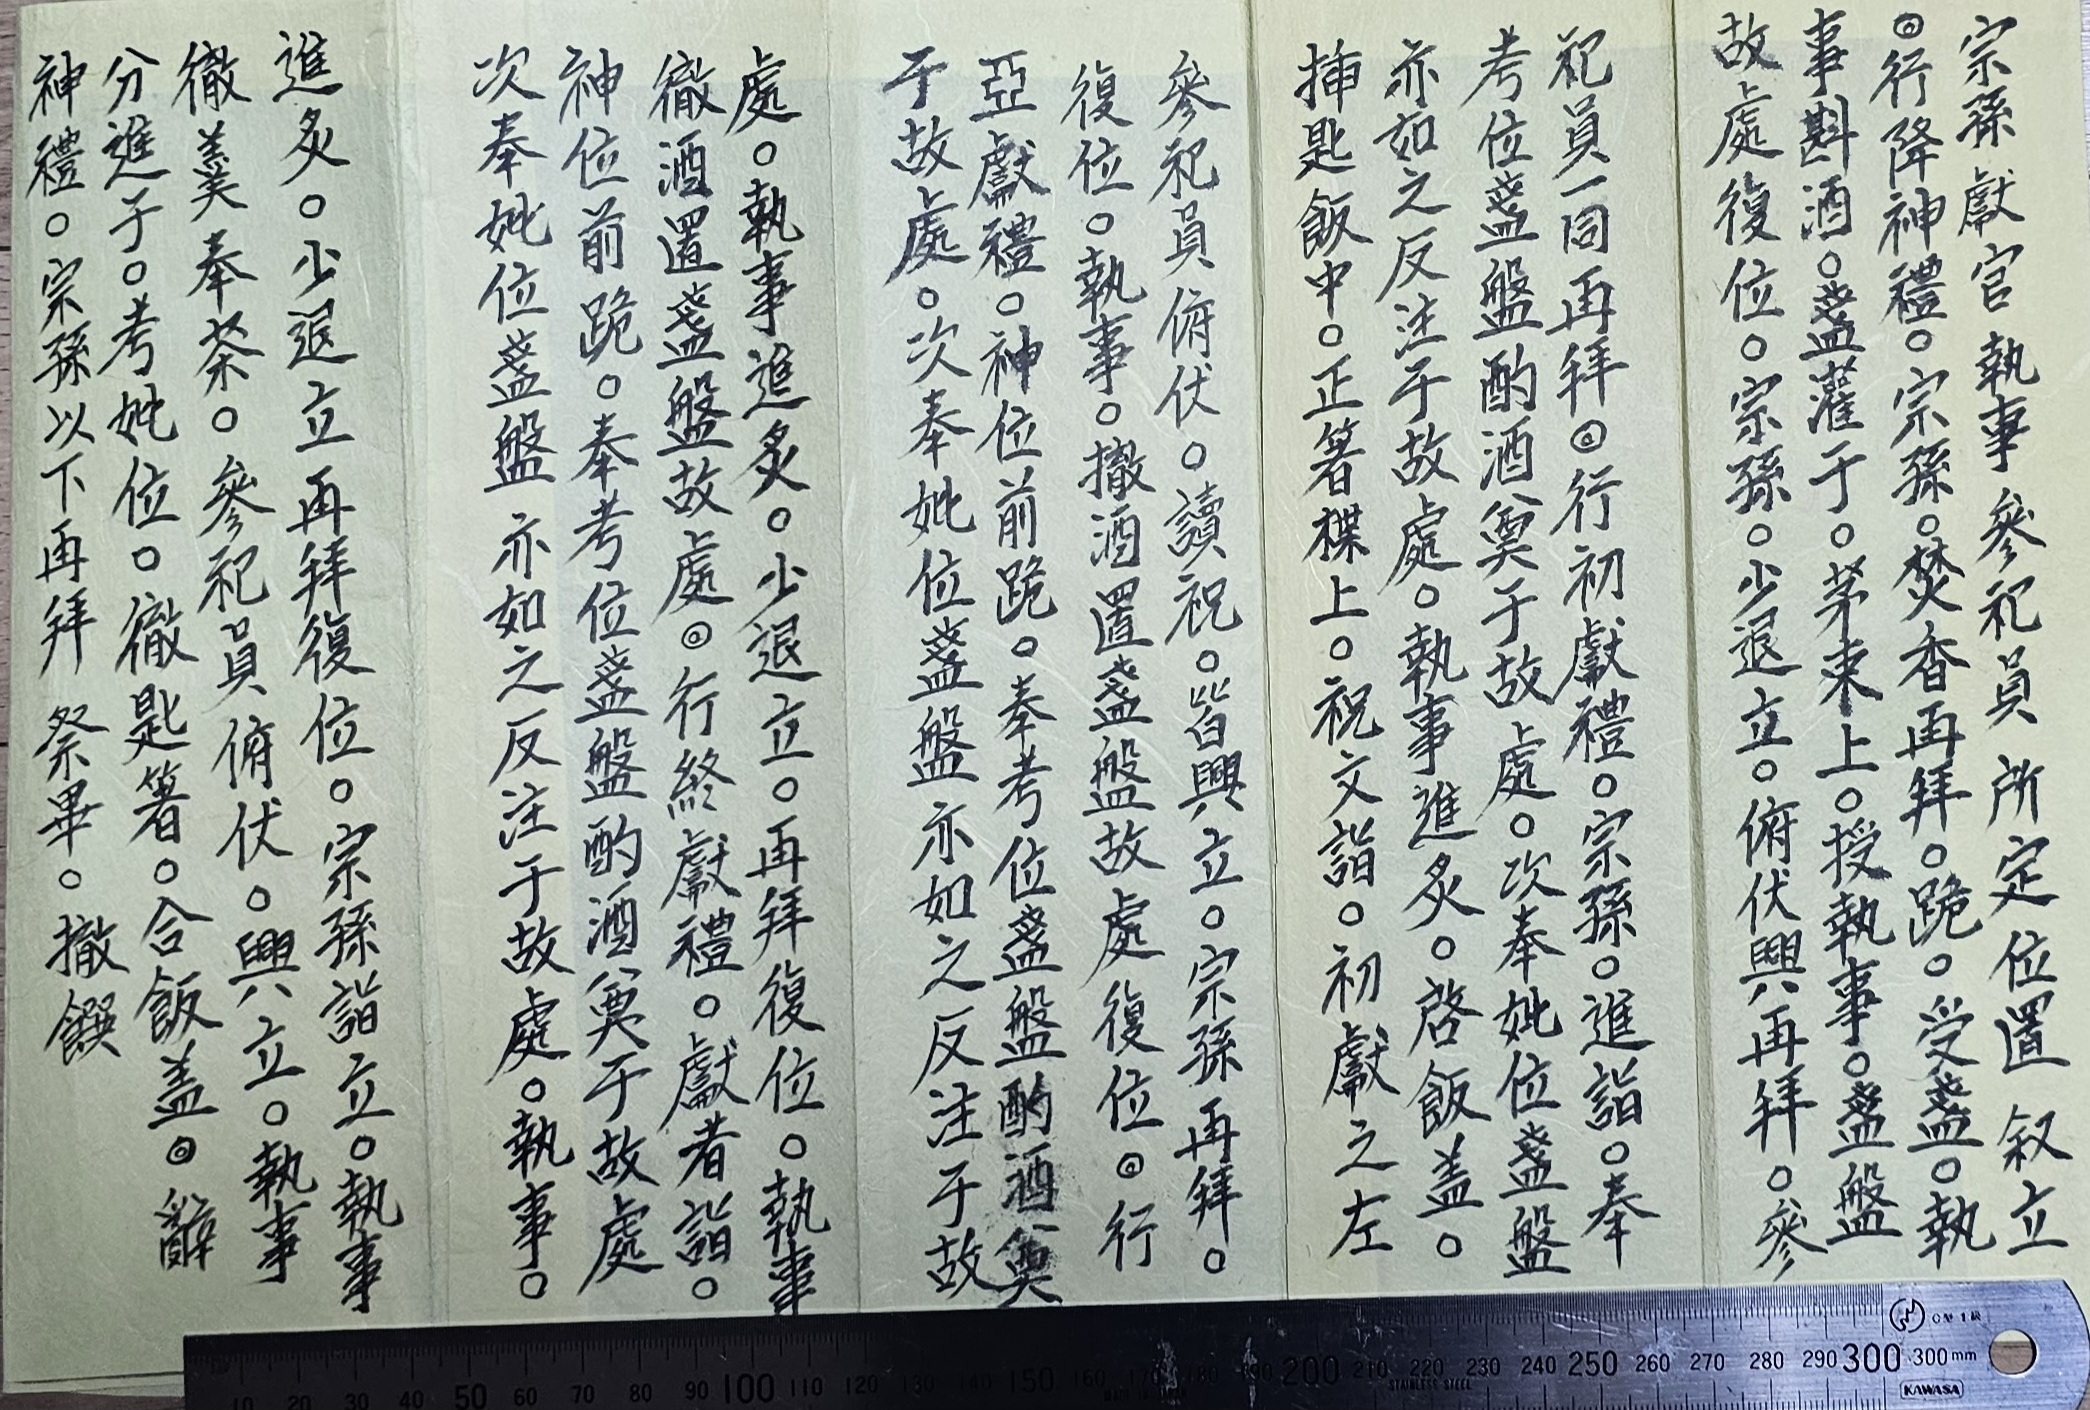 宗孫獻官執事參祀員所定位置叙立
◎行降神禮○宗孫○焚香再拜○跪○受盞○執
事斟酒○盞灌于○茅束上○授執事○盞盤
故處復位○宗孫○少退立○俯伏興再拜○參
祀員一同再拜◎行初獻禮○宗孫○進詣○奉
考位盞盤酌酒奠于故處○次奉妣位盞盤
亦如之反注于故處○執事進炙○啓飯盖○
揷匙飯中○正箸楪上○祝文詣○初獻之左
參祀員俯伏○讀祝○皆興立○宗孫再拜○
復位○執事○撤酒置盞盤故處復位◎行
亞獻禮○神位前跪○奉考位盞盤酌酒奠
于故處○次奉妣位盞盤亦如之反注于故
處○執事進炙○少退立○再拜復位○執事
徹酒置盞盤故處◎行終獻禮○獻者詣○
神位前跪○奉考位盞盤酌酒奠于故處
次奉妣位盞盤亦如之反注于故處○執事○
進炙○少退立再拜復位○宗孫詣立○執事
徹羹奉茶○參祀員俯伏○興立○執事
分進于○考妣位○徹匙箸○合飯盖◎辭
神禮○宗孫以下再拜祭畢○撤饌
10 20 30 40 50 60 70 80 90 100 110 120 130 140 150 160 170 180 190 200 210 220 230 240 250 260 270 280 290 300 300mm
STAINLESS STEEL
KAWASA